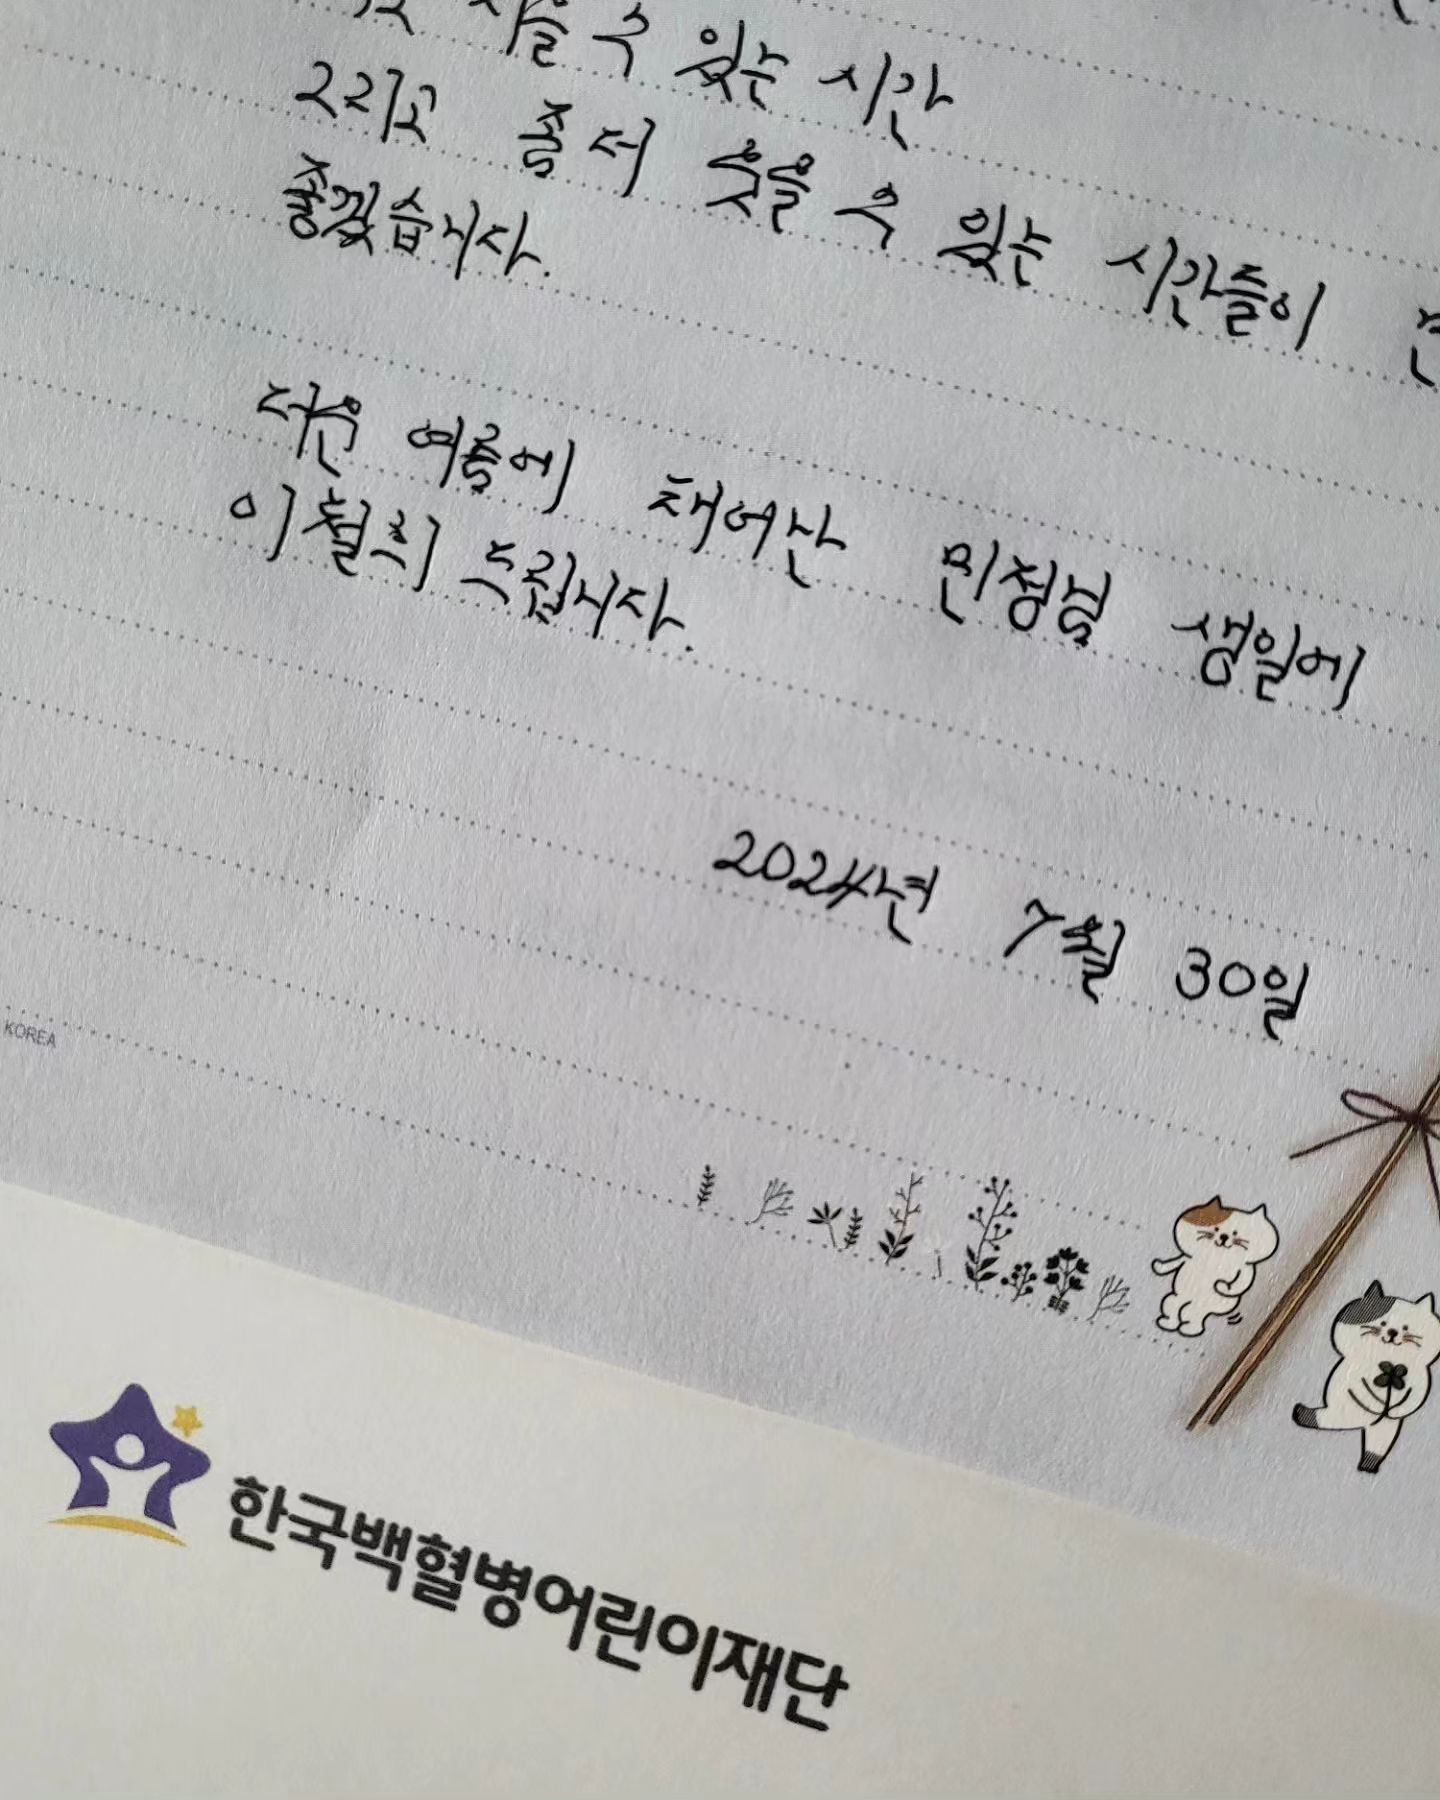 있는 시간
그리고 좀 더 웃을 수 있는 시간들이
좋겠습니다.
더운 여름에 태어난 민정님 생일에
이철희 드립니다.
2024년 7월 30일
KOREA
한국백혈병어린이재단